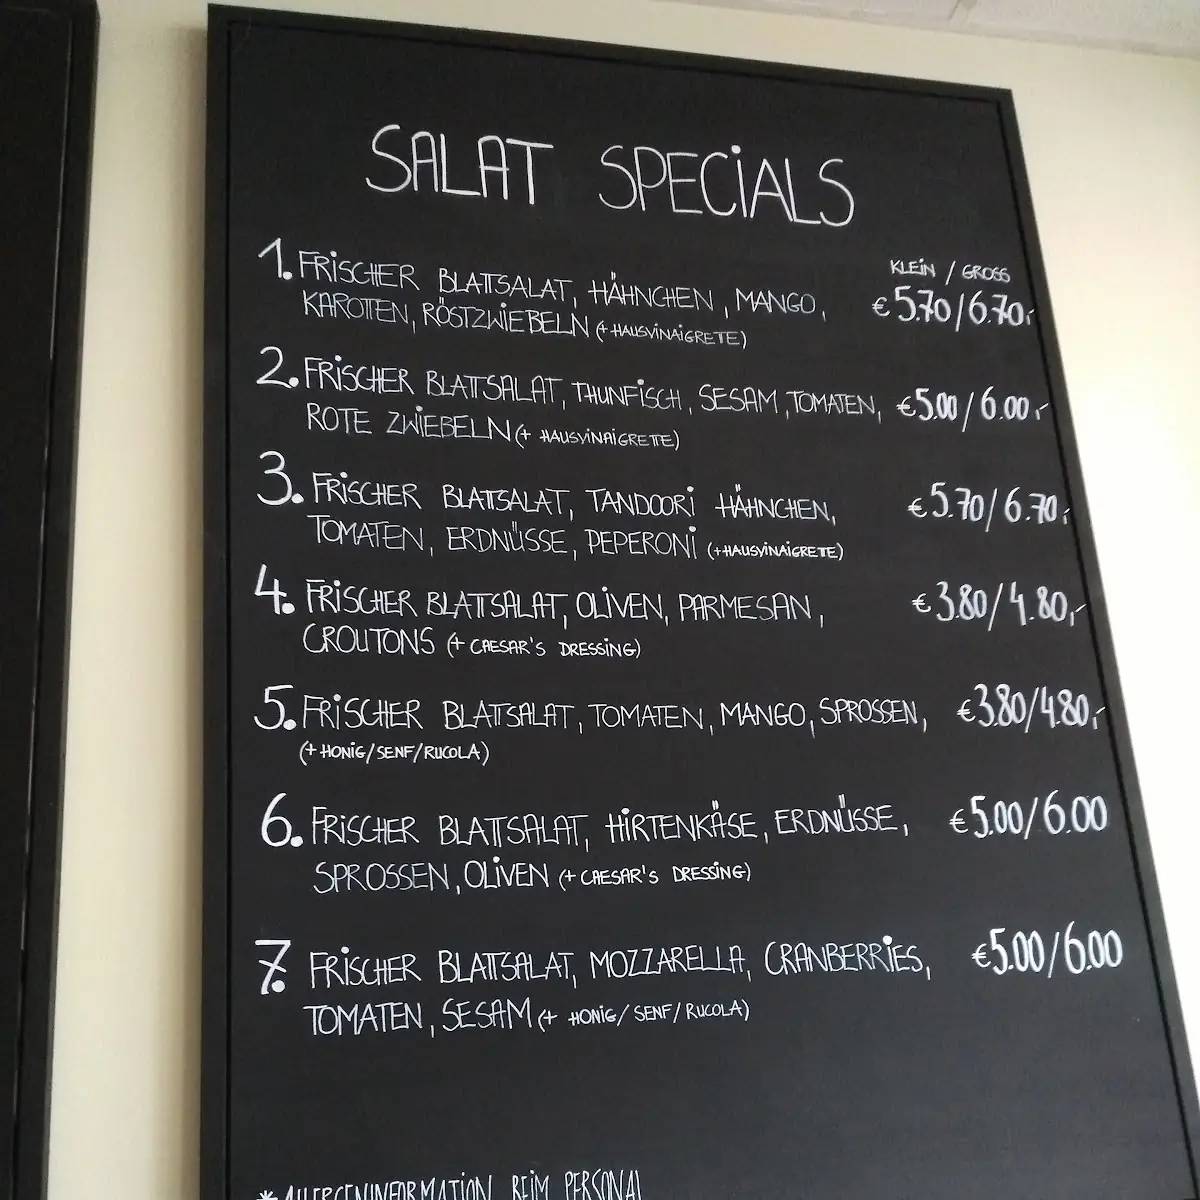 SALAT SPECIALS
KLEIN / GROSS
1. FRISCHER BLATTSALAT, HÄHNCHEN, MANGO, € 5.70/6.70,-
KAROTTEN, RÖSTZWIEBELN (+ HAUSVINAIGRETE)
2. FRISCHER BLATTSALAT, THUNFISCH, SESAM, TOMATEN, € 5.00/6.00,-
ROTE ZWIEBELN (+ HAUSVINAIGRETTE)
3. FRISCHER BLATTSALAT, TANDOORI HÄHNCHEN, € 5.70/6.70,-
TOMATEN, ERDNÜSSE, PEPERONI (+HAUSVINAIGRETE)
4. FRISCHER BLATTSALAT, OLIVEN, PARMESAN, € 3.80/4.80,-
CROUTONS (+ CAESAR'S DRESSING)
5. FRISCHER BLATTSALAT, TOMATEN, MANGO, SPROSSEN, € 3.80/4.80,-
(+ HONIG/SENF/RUCOLA)
6. FRISCHER BLATTSALAT, HIRTENKÄSE, ERDNÜSSE, € 5.00/6.00
SPROSSEN, OLIVEN (+ CAESAR'S DRESSING)
7. FRISCHER BLATTSALAT, MOZZARELLA, CRANBERRIES, € 5.00/6.00
TOMATEN, SESAM (+ HONIG/SENF/RUCOLA)
* ALLERGENINFORMATION BEIM PERSONAL